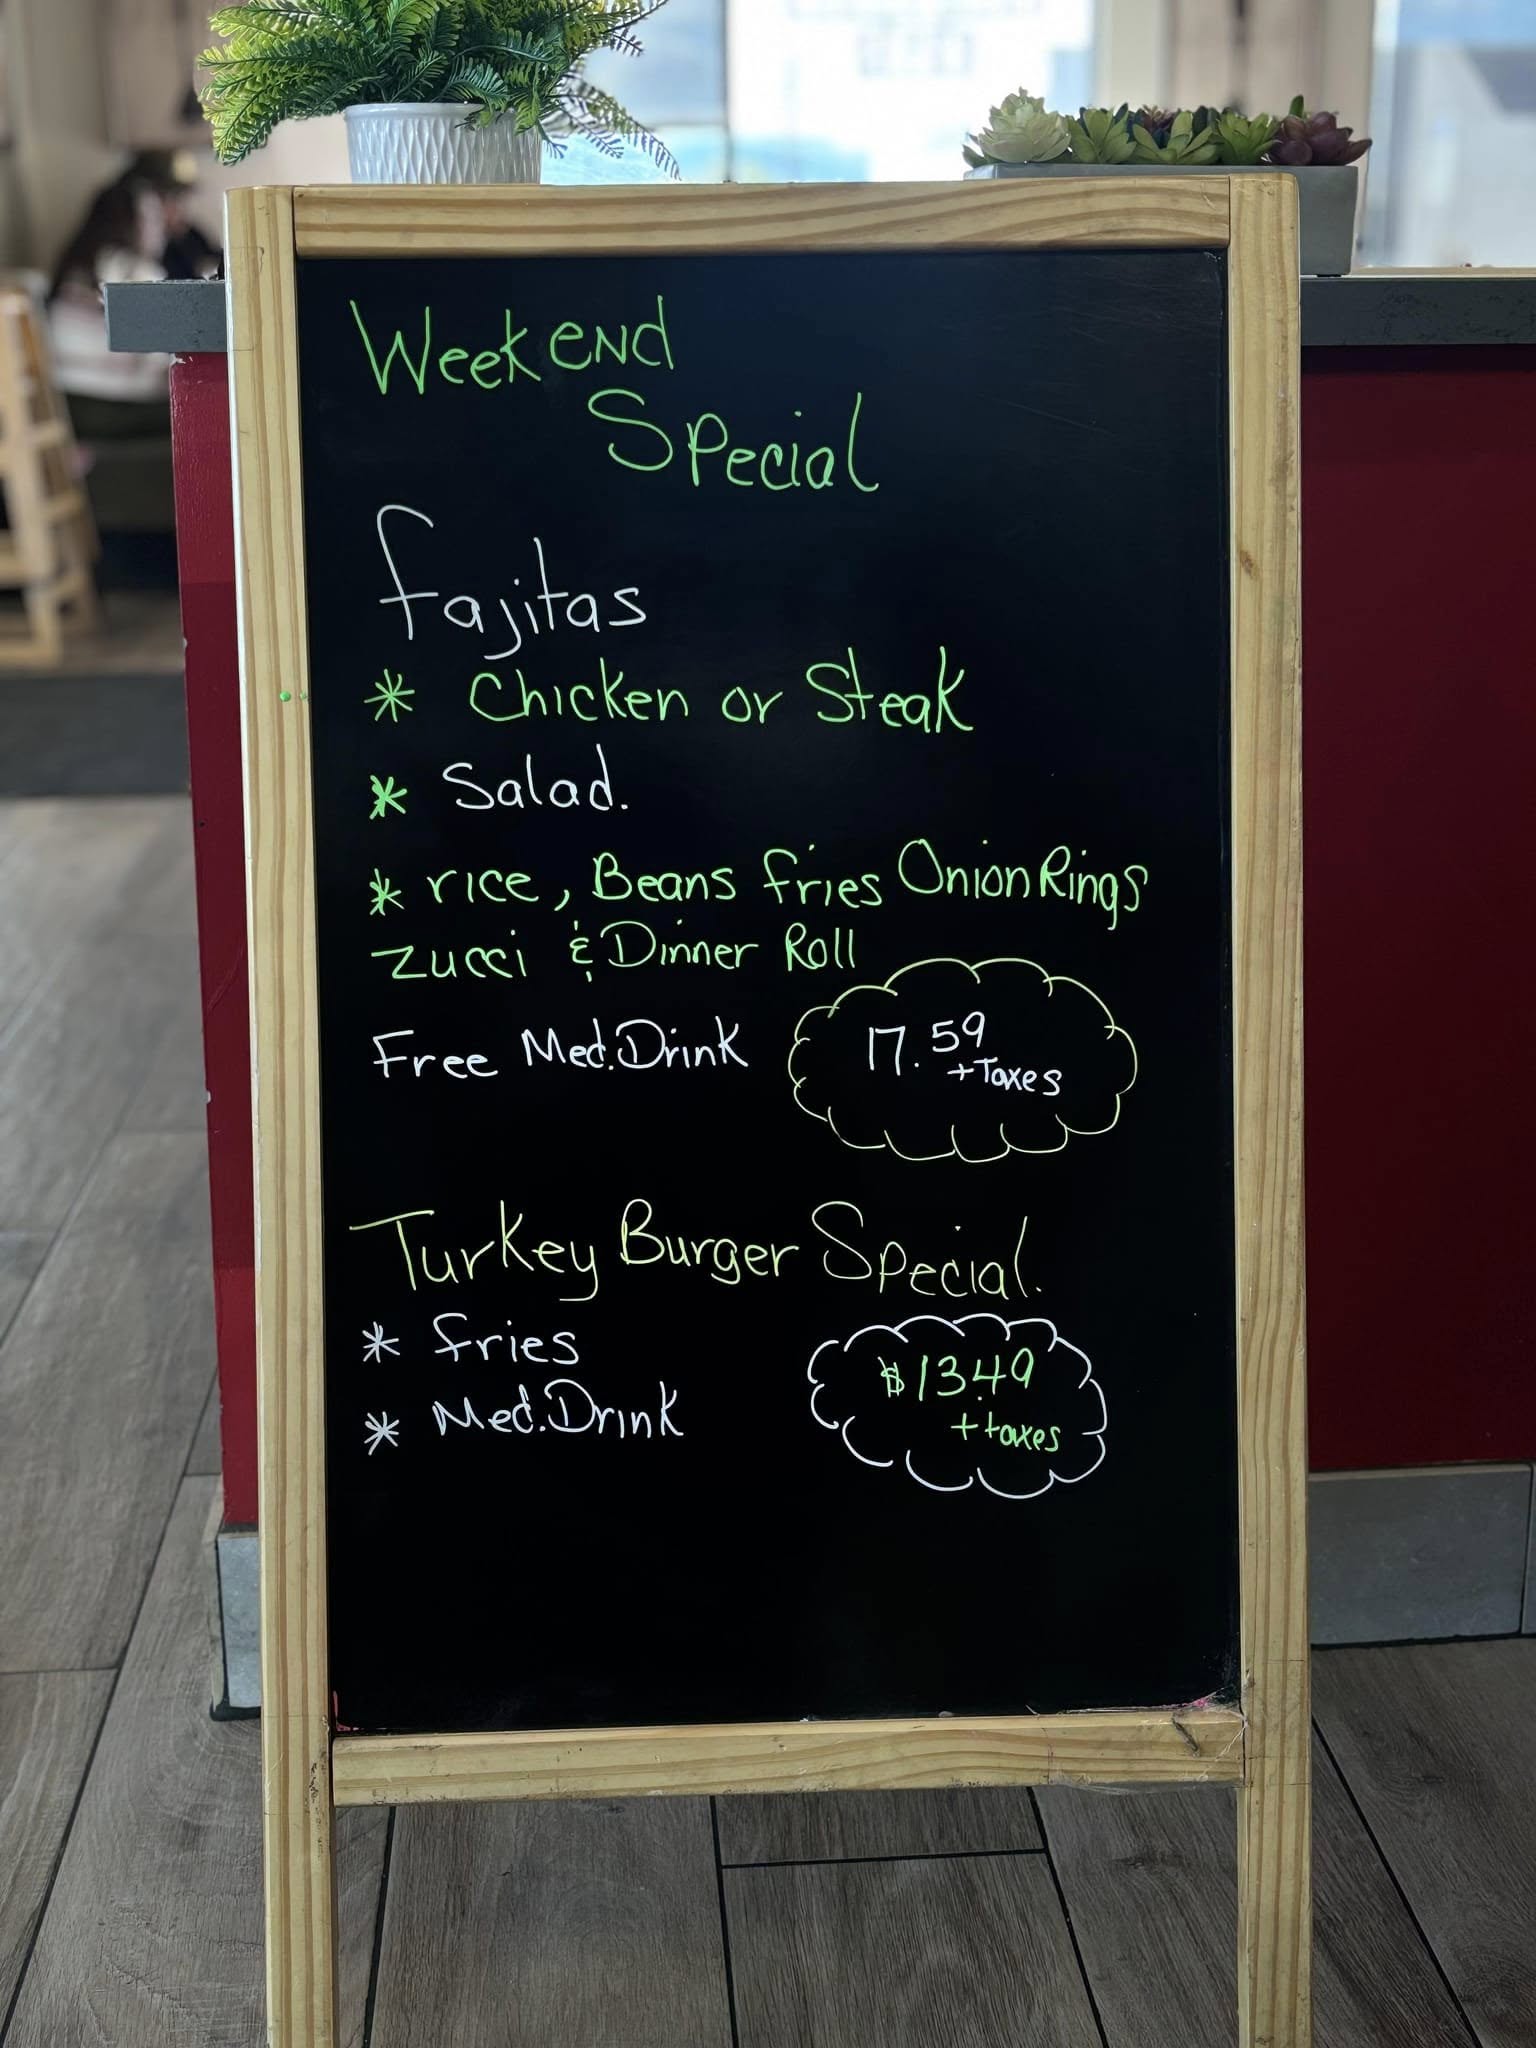 Weekend
Special
fajitas
* Chicken or Steak
* Salad.
* rice, Beans fries Onion Rings
zucci & Dinner Roll
Free Med. Drink
17.59
+ Taxes
Turkey Burger Special.
* fries
* Med. Drink
$13.49
+ taxes